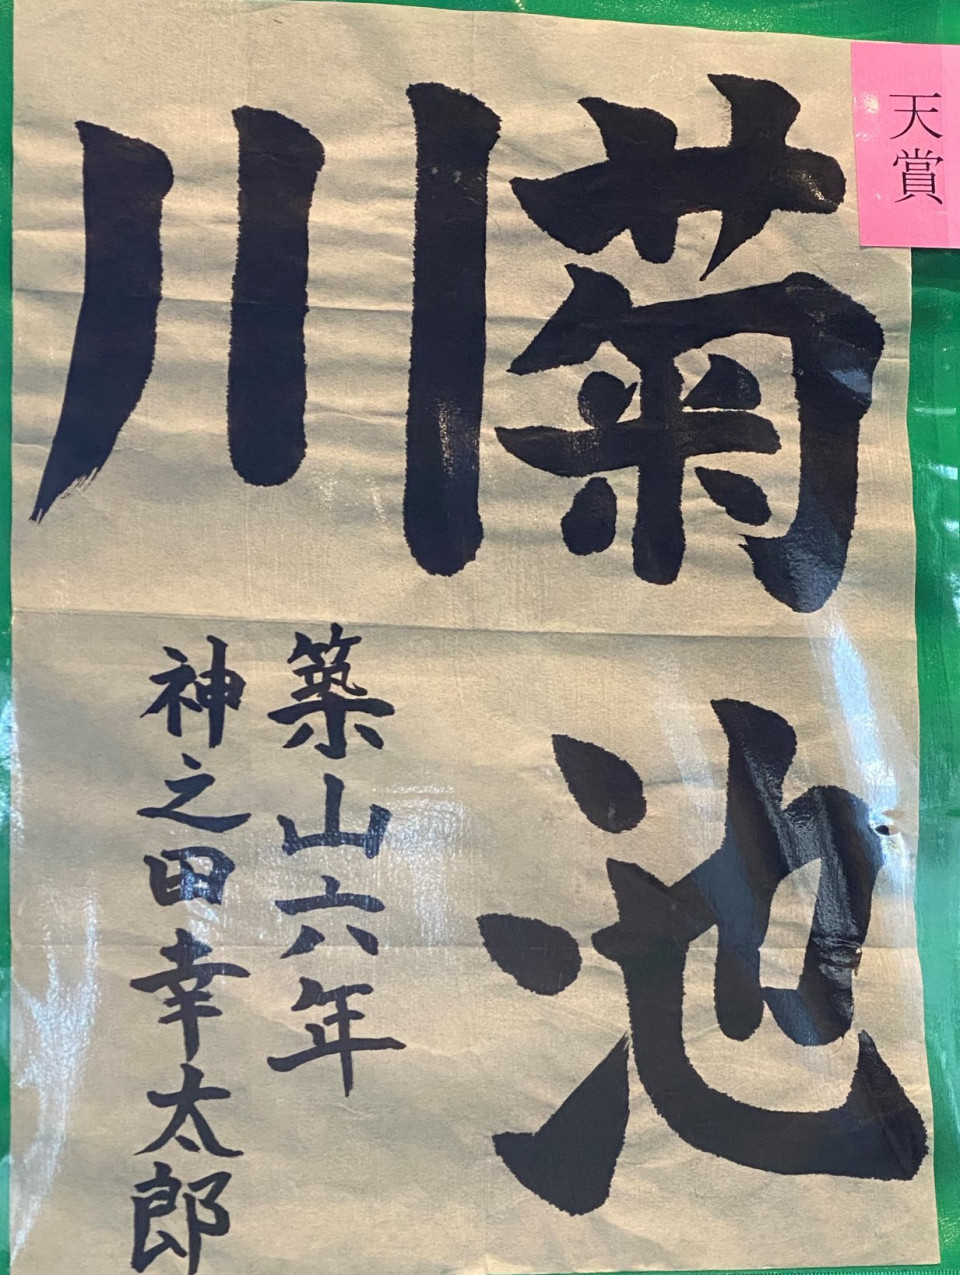 天賞
菊池
川
築山六年
神之田幸太郎